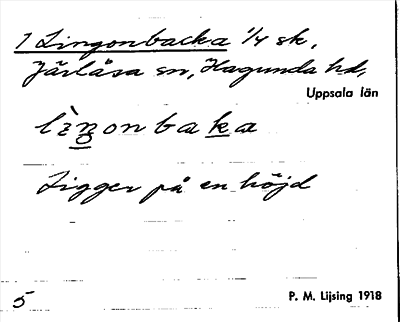 1 Lingonbacka 1/4 sk,
Järlåsa sn, Hagunda hd,
Uppsala län
lìn̥onbaka
Ligger på en höjd
5
P. M. Lijsing 1918